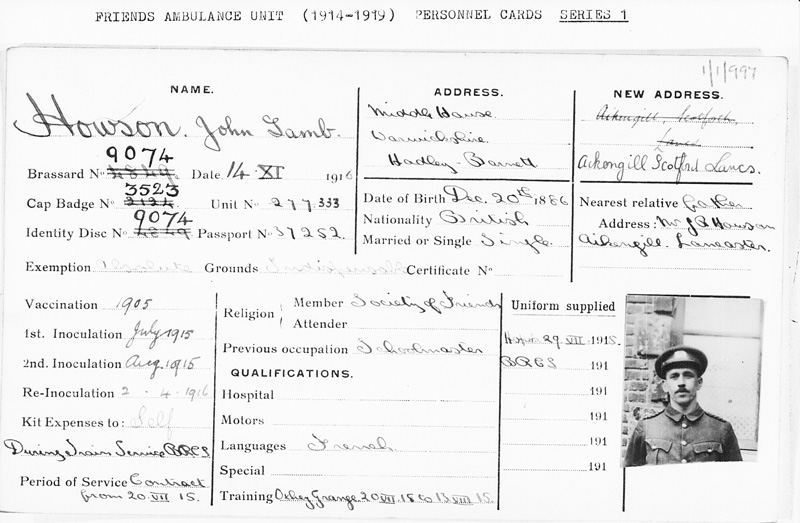 FRIENDS AMBULANCE UNIT (1914-1919) PERSONNEL CARDS SERIES 1
1/1/997
NAME.
Howson. John Lamb.
9074
Brassard No 4849. Date 14-XI 1916
3523
Cap Badge No 2124. Unit No 277 333
9074
Identity Disc No 4849 Passport No 37252.
ADDRESS.
Middle House
Warwickshire
Hadley-Barnett
Date of Birth Dec. 20th 1886
Nationality British
Married or Single Single.
NEW ADDRESS.
Aikengill, Scotforth,
Lancs
Aikengill Scotford Lancs.
Nearest relative father
Address: Mr J R Howson
Aikengill. Lancaster.
Exemption Absolute Grounds Indispensable Certificate No
Vaccination 1905
1st. Inoculation July 1915
2nd. Inoculation Aug. 1915
Re-Inoculation 2.4.1916
Kit Expenses to: Self
During Train Service BRCS
Period of Service Contract
from 20 VII 15.
Religion Member Society of Friends
Attender
Previous occupation Schoolmaster
QUALIFICATIONS.
Hospital
Motors
Languages French
Special
Training Grange 20 VII 15 to 13 VIII 15.
Uniform supplied
29 VII 1915.
BRCS 191
191
191
191
191